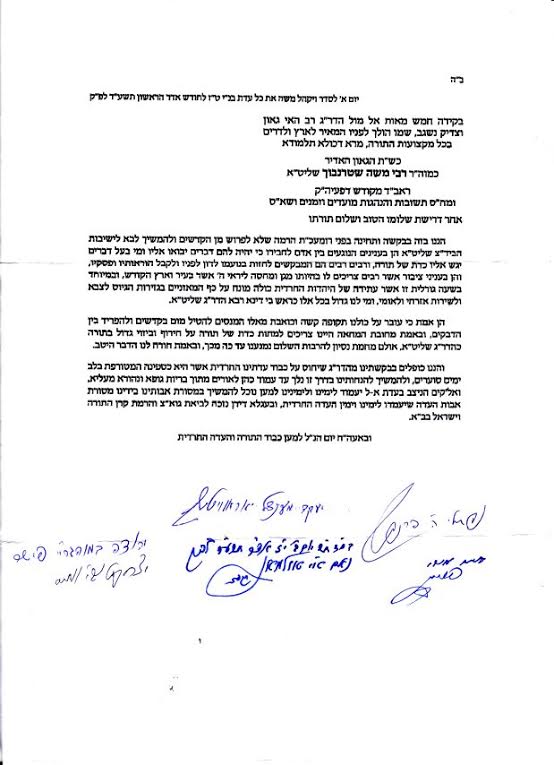 ב"ה
יום א' לסדר ויקהל משה את כל עדת בנ"י ט"ז לחודש אדר הראשון תשע"ד לפ"ק
בקידה חמש מאות אל מול הדר"ג רב האי גאון
וצדיק נשגב, שמו הולך לפניו המאיר לארץ ולדרים
בכל מקצועות התורה, מרא דכולא תלמודא
כש"ת הגאון האדיר
כמוה"ר רבי משה שטרנבוך שליט"א
ראב"ד מקודש דפעיה"ק
ומח"ס תשובות והנהגות מועדים וזמנים ושא"ס
אחר דרישת שלומו הטוב ושלום תורתו
הננו בזה בבקשה ותחינה בפני רומעכ"ת הרמה שלא לפרוש מן הקדשים ולהמשיך לבא לישיבות
הביד"צ שליט"א הן בענינים הנוגעים בין אדם לחבירו כי יהיה להם דברים יבואו אליו ומי בעל דברים
יגש אליו כדת של תורה, ורבים רבים הם המבקשים לחזות בנועמו לדון לפניו ולקבל הוראותיו ופסקיו,
והן בעניני ציבור אשר רבים צריכים לו בהיותו מגן ומחסה ליראי ה' אשר בעיר וארץ הקודש, ובמיוחד
בשעה גורלית זו אשר עתידה של היהדות החרדית כולה מונח על כף המאזניים בגזירות הגיוס לצבא
ולשירות אזרחי ולאומי, ומי לנו גדול בכל אלו כראש בי דינא רבא הדר"ג שליט"א.
הן אמת כי עובר על כולנו תקופה קשה וכואבת מאלו המנסים להטיל מום בקדשים ולהפריד בין
הדבקים, ובאמת מחובת המחאה היינו צריכים לגהות כדת של תורה על חירוף וביזוי גדול בתורה
כהדר"ג שליט"א, אולם מחמת נסיון להרבות השלום נמנענו עד כה מכך, ובאמת חורה לנו הדבר היטב.
והננו כופלים בבקשתינו מהדר"ג שיחוס על כבוד עדתינו החרדית אשר היא כספינה המטורפת בלב
ימים סוערים, ולהמשיך להנחותינו בדרך זו נלך עד עמוד כהן לאורים מתוך בריות גופא ונהורא מעליא,
ואלקים הניצב בעדת א-ל יעמוד לימינו ולימינינו למען נוכל להמשיך במסורת אבותינו בידינו מסורת
אבות העדה שיעמדו לימינו וימין העדה החרדית, ובעגלא דידן נזכה לביאת גוא"צ והרמת קרן התורה
וישראל בב"א.
ובאעה"ח יום הנ"ל למען כבוד התורה והעדה החרדית